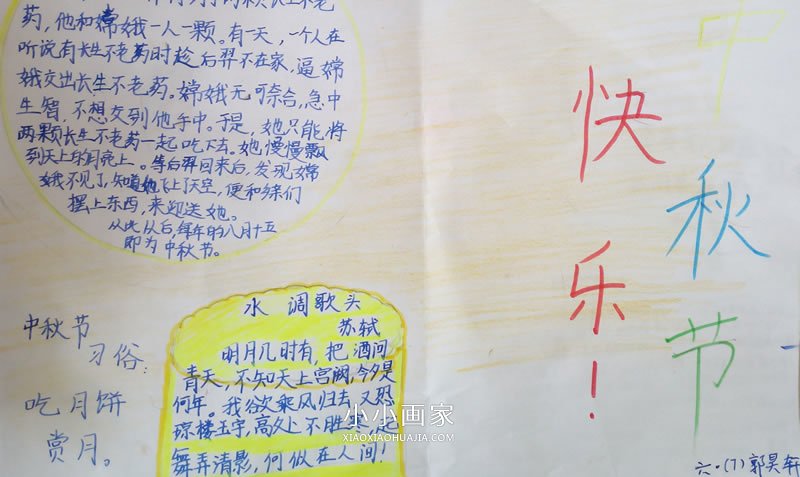 药,他和嫦娥一人一颗。有一天,一个人在
听说有长生不老药时趁后羿不在家,逼嫦
娥交出长生不老药。嫦娥无可奈合,急中
生智,不想交到他手中。于是,她只能将
两颗长生不老药一起吃下去。她慢慢飘
到天上的月亮上。等后羿回来后,发现嫦
娥不见了,知道她飞上了天空,便和乡亲们
摆上东西,来迎送她。
从此从后,每年的八月十五
即为中秋节。
中秋节
习俗:
吃月饼
赏月。
水调歌头
苏轼
明月几时有,把酒问
青天,不知天上宫阙,今夕是
何年。我欲乘风归去,又恐
琼楼玉宇,高处不胜寒,起
舞弄清影,何似在人间!
中秋节
快乐!
六·(7)郭昊轩
小小画家
XIAOXIAOHUAJIA.COM